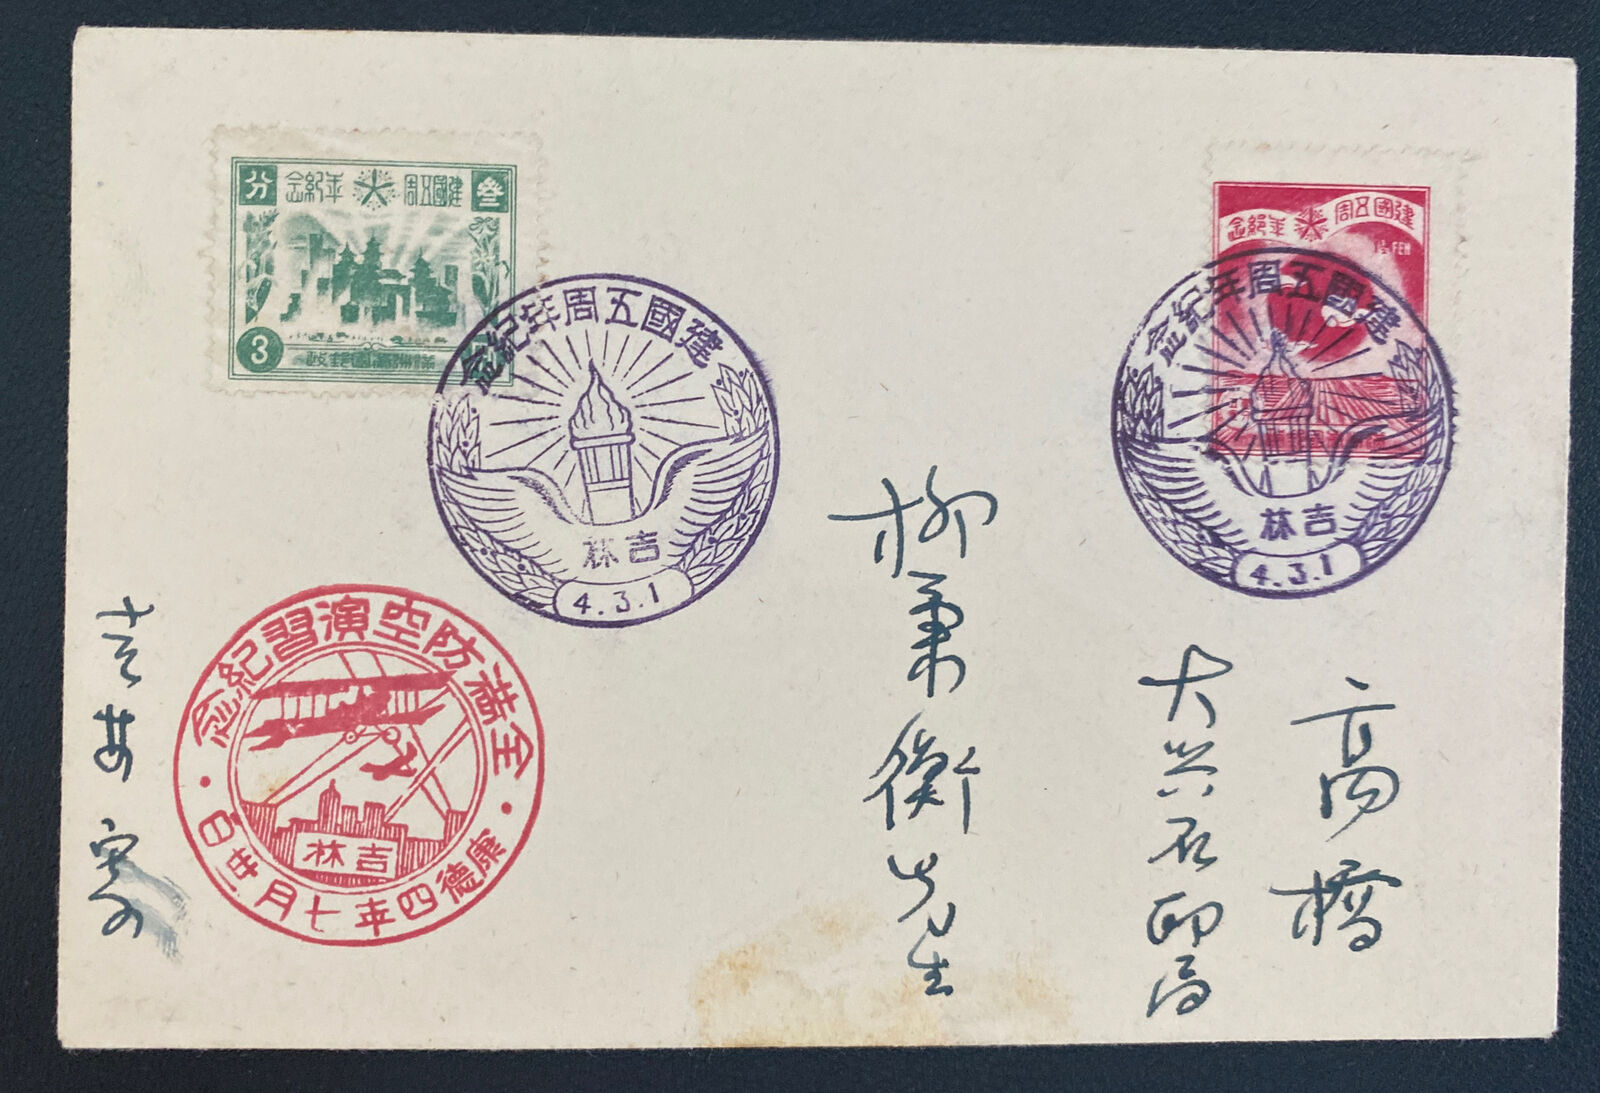 建國五周年紀念
叁
分
3
滿洲帝國郵政
建國五周年紀念
1½ FEN
建國五周年紀念
吉林
4.3.1
建國五周年紀念
吉林
4.3.1
高橋
大兴石印局
柳秉衡先生
全滿防空演習紀念
吉林
康德四年七月卅日